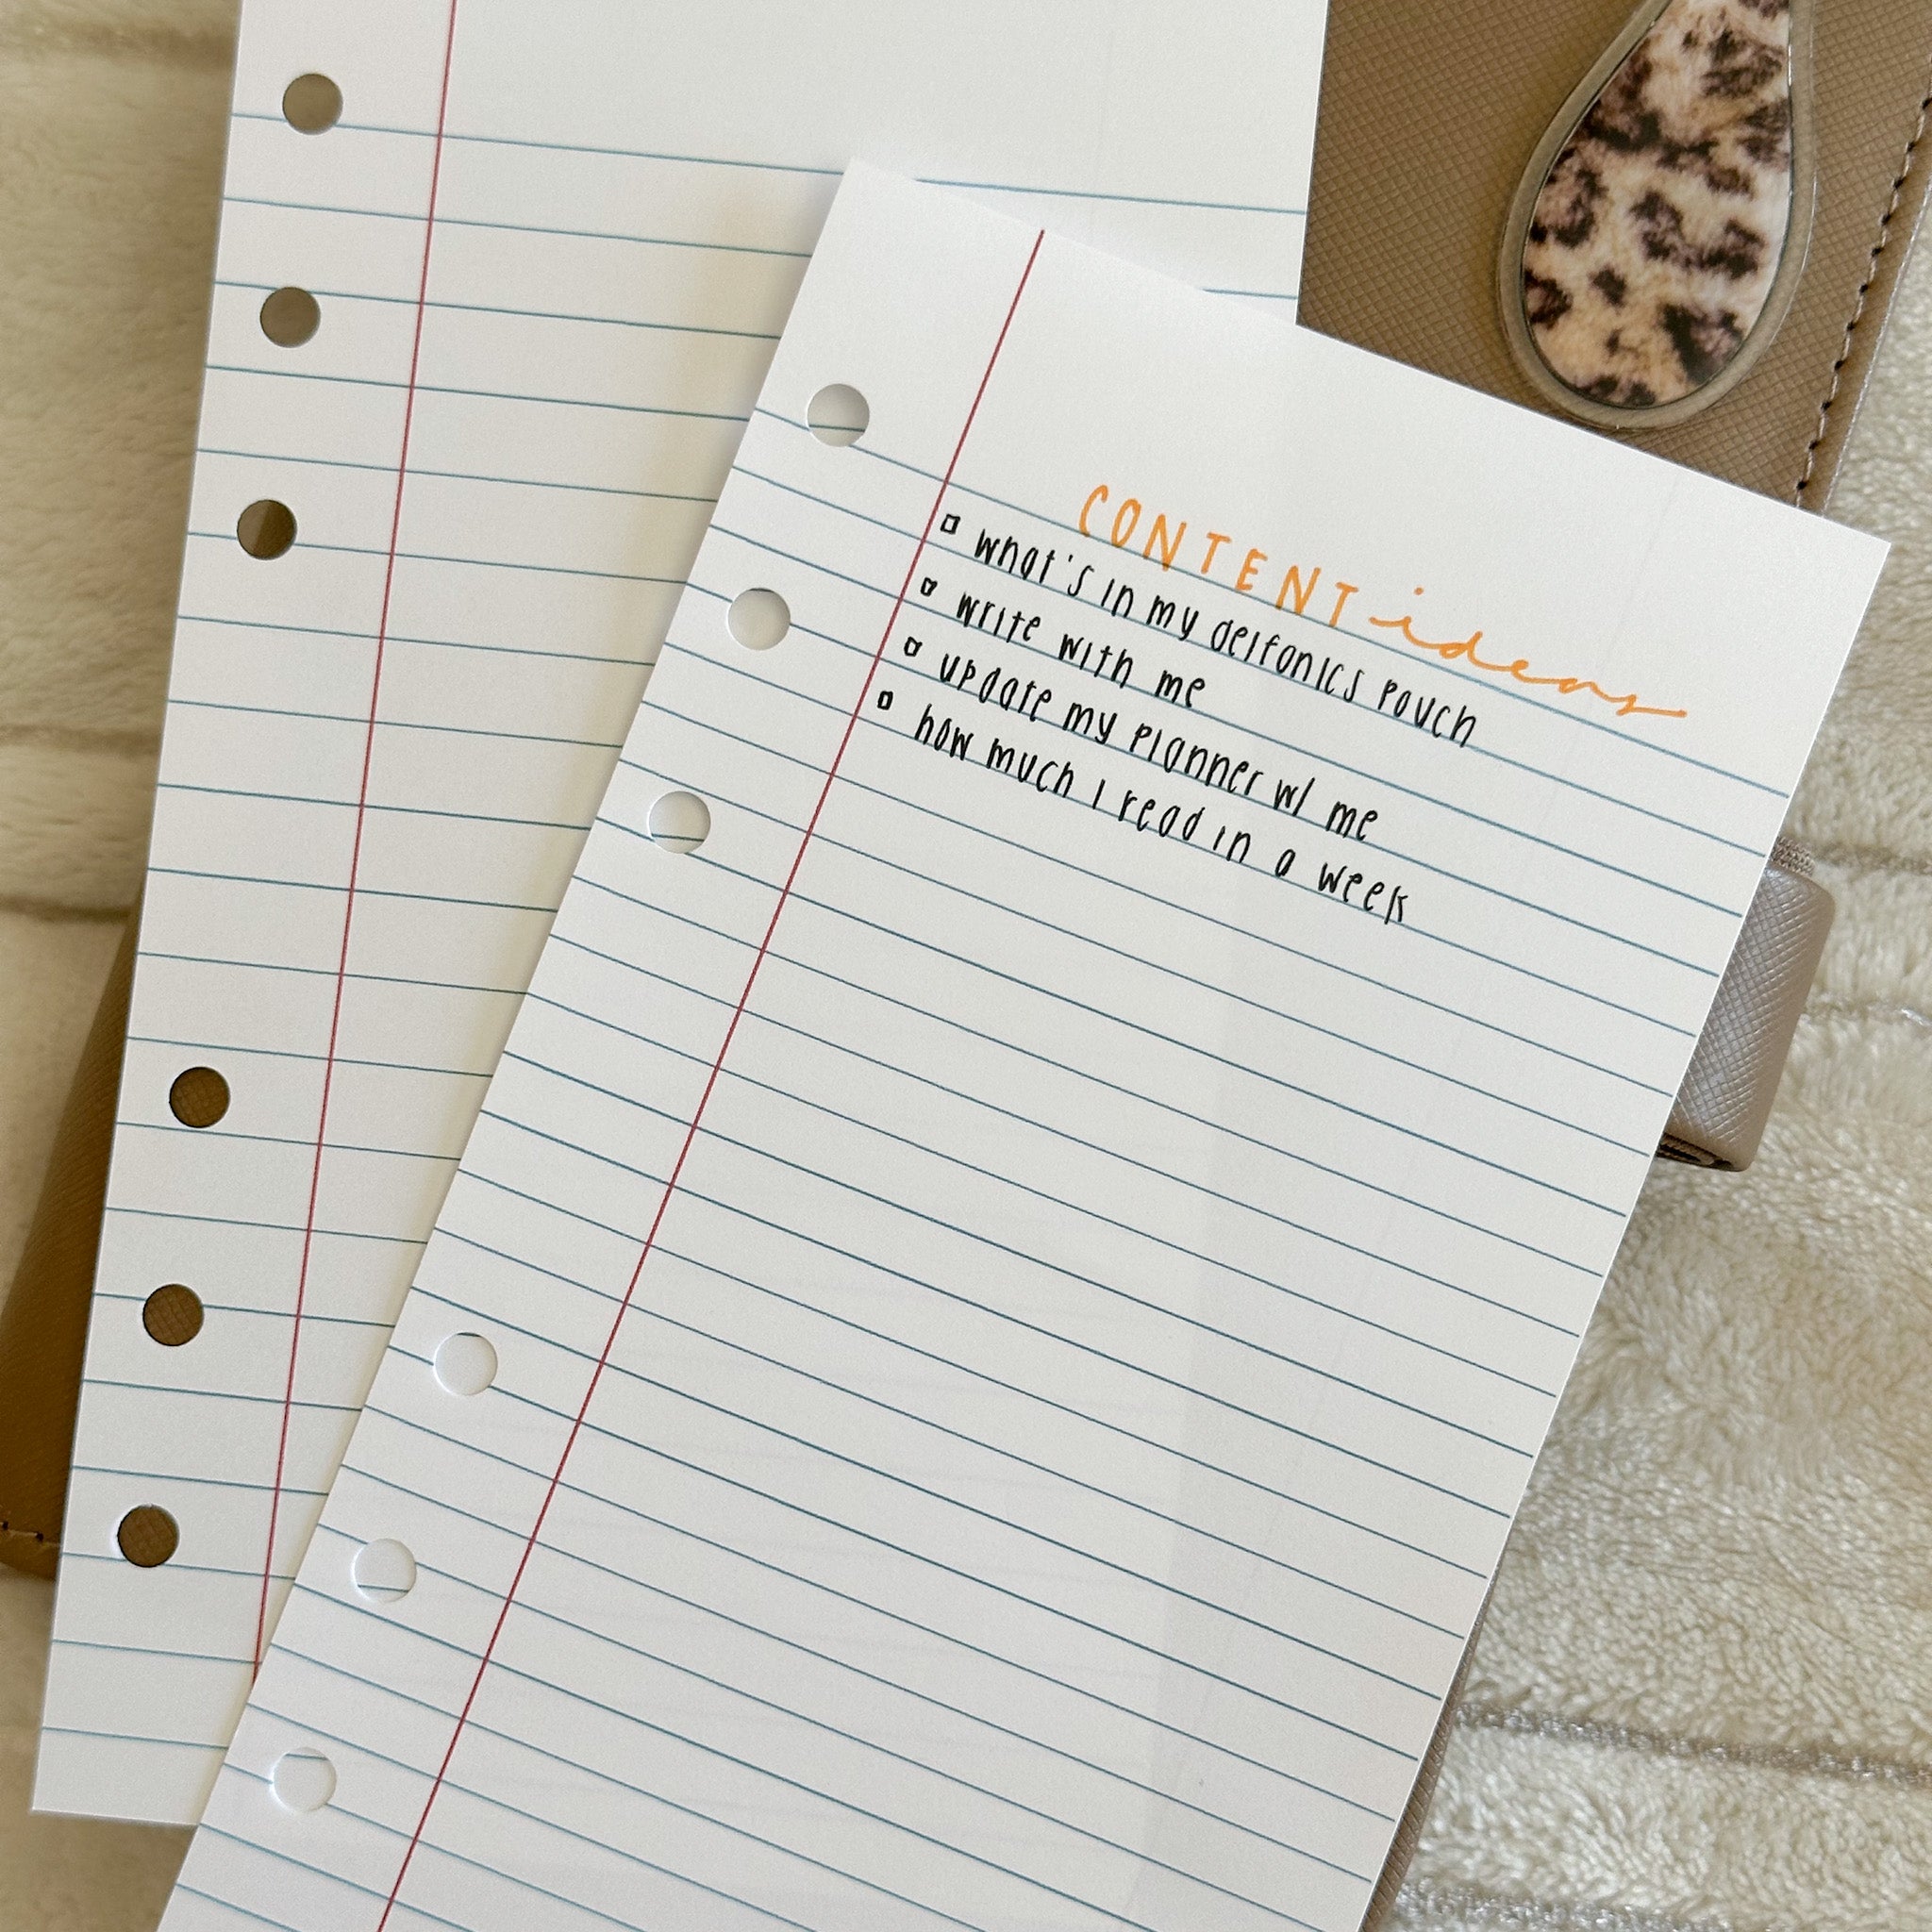 CONTENT ideas
what's in my delfonics pouch
write with me
update my planner w/ me
how much I read in a week